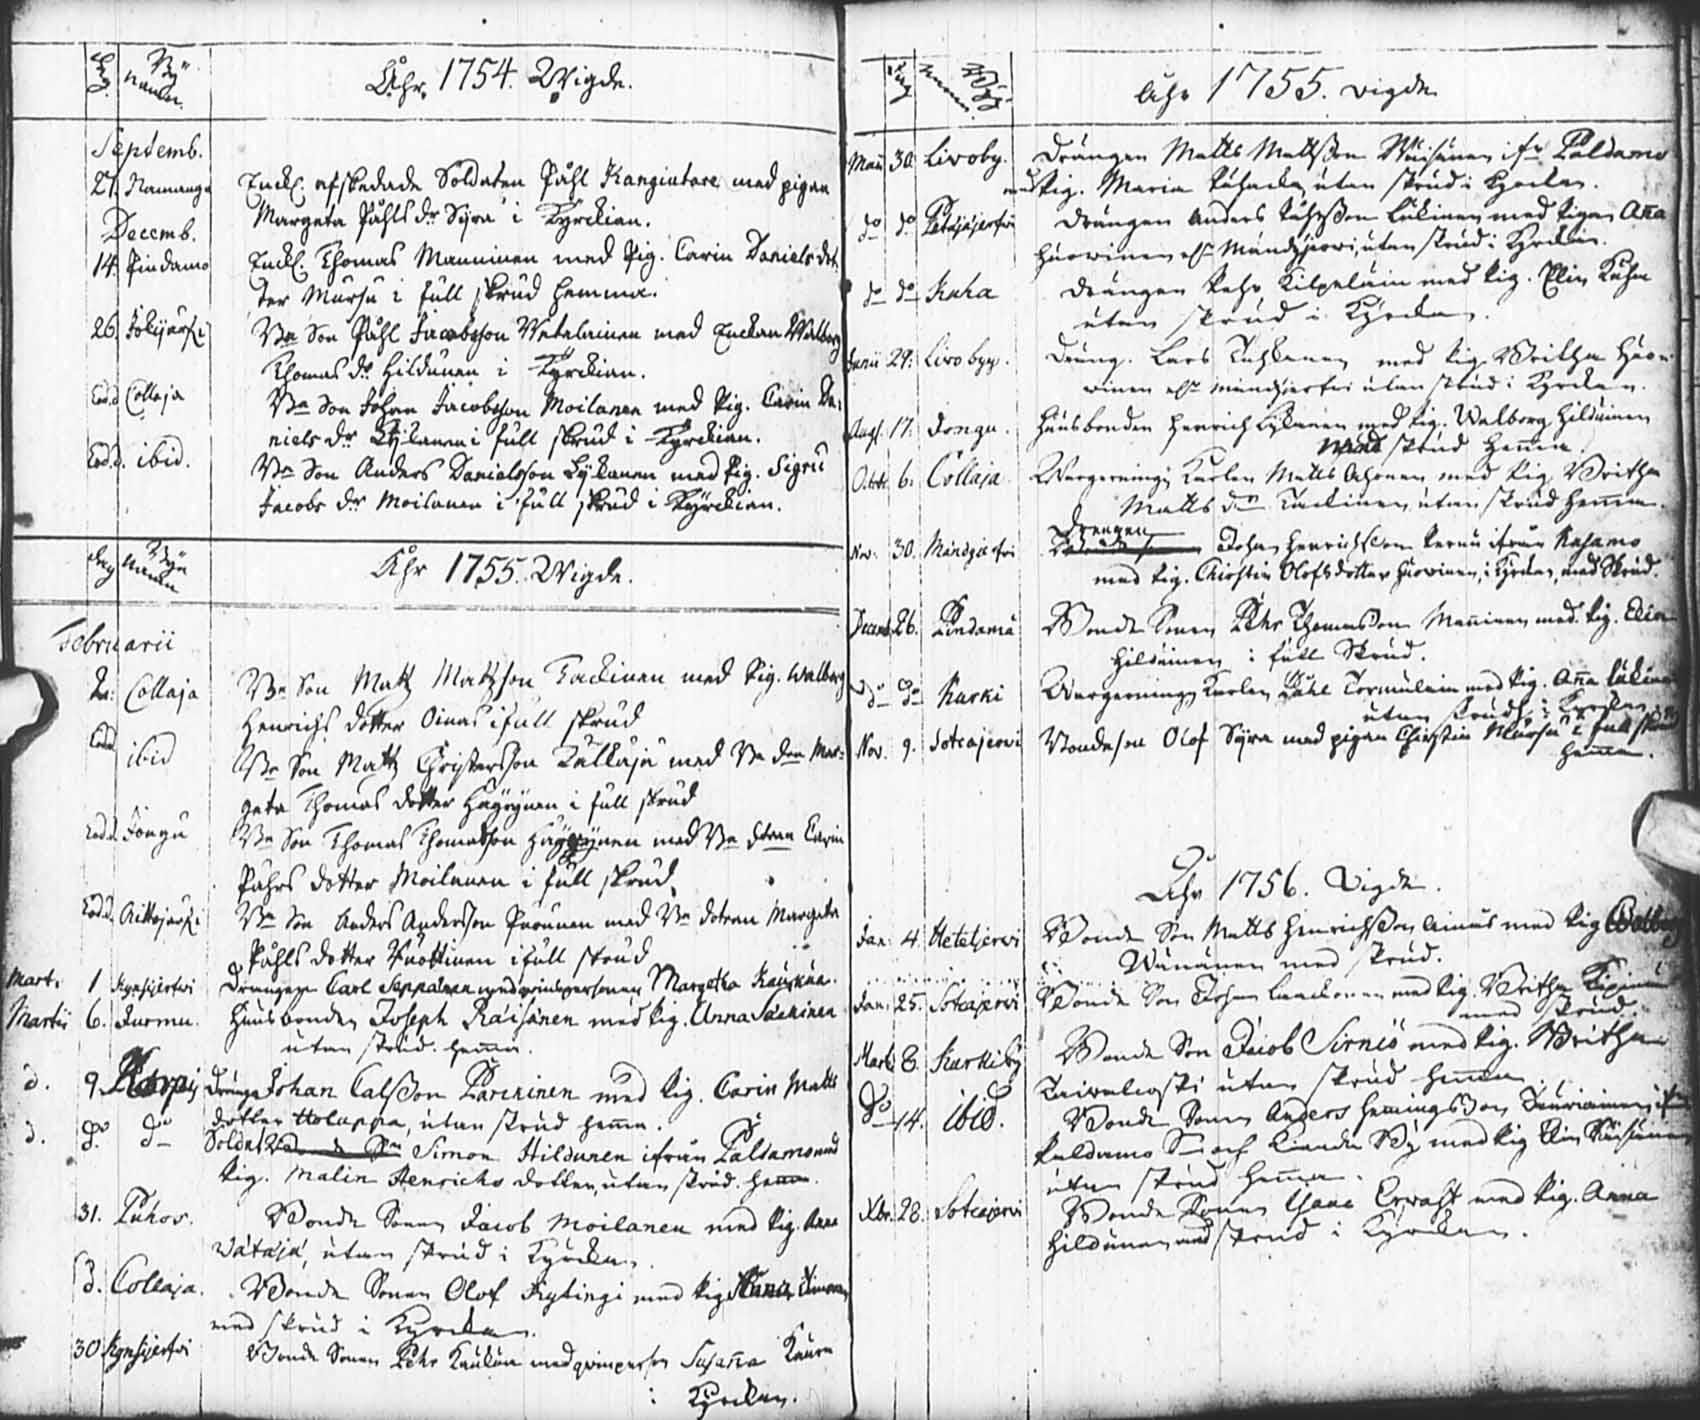 Dag By Namn. Åhr 1754. Wigde.
Septemb.
27. Namanga Enckl. afskedade Soldaten Påhl Kangiutare med pigan
Margeta Påhls dr Syra i Kyrckian.
Decemb.
14. Pindamo Enckl. Thomas Manninen med Pig. Carin Daniels dot
ter Mursu i full skrud hemma.
26. Jokijärfi Bn Son Påhl Jacobsson Wetelainen med Enckan Walborg
Thomas dr Hildunen i Kyrckian.
Eod.d Collaja Bn Son Johan Jacobsson Moilanen med Pig. Carin Da:
niels dr Lykanen i full skrud i Kyrckian.
Eod.d. ibid. Bn Son Anders Danielsson Lykanen med Pig. Sigrid
Jacobs dr Moilanen i full skrud i Kyrckian.
Dag By Namn Åhr 1755. Wigde.
Februarii
Collaja Bn Son Matz Matzson Tackinen med Pig. Walborg
Henrichs dotter Oinas i full skrud
Eod. ibid Bn Son Matz Christersson Källäjä med Bn dn Mar:
geta Thomas dotter Häyrynen i full skrud
Eod.d. Jongu Bn Son Thomas Thomasson Häyrynen med Bn dotren Carin
Påhrs dotter Moilanen i full skrud.
Eod.d. Aittojärfi Bn Son Anders Andersson Pronnen med Bn dotren Margeta
Påhls dotter Nuottinen i full skrud
Mart. 1 Kynsijerfvi Drängen Carl Seppänen med qvinspersonen Margetha Kaurain
Martii 6. Jurmu. Husbonden Joseph Räisänen med Pig. Anna Säckinen
utan skrud hemma.
d. 9. Korpij Dränge Johan Calsson Parckinen med Pig. Carin Matts
dotter Holappa, utan skrud hemma.
d. do do Soldat Simon Hildunen ifrån Paldamo med
Pig. Malin Henrichs dotter, utan skrud hemma.
31. Puhos. Bonde Sonen Jacob Moilanen med Pig. Anna
Wätäjä, utan skrud i Kyrckan.
d. Collaja. Bonde Sonen Olof Kytingi med Pig Anna Simonen
med skrud i Kyrckan.
30. Kynsijerfvi Bonde Sonen Pehr Kaukua med qvinsperson Susanna Kaurn
i Kyrckan.
Dag Byns Namn Åhr 1755. Vigde
Maii 30. Livoby. Drängen Matts Mattsson Wäisänen ifr. Paldamo
med Pig. Maria utan skrud i Kyrckan.
do do Petäjäjerfvi Drängen Anders Pährsson Lukinen med Pigan Anna
Huovinen ifr. Mändyjerfvi, utan skrud i Kyrckan.
do do Kuha Drängen Pehr Kilpeläin med Pig. Elin Kuha
utan skrud i Kyrckan.
Junii 29. Livoby. Dräng. Lars Tuhkanen med Pig. Britha Huo-
vinen ifr Mändyjerfvi utan skrud i Kyrckan.
Aug. 17. Jongu. Husbonden Henrich Lykanen med Pig. Walborg Hilduinen
med skrud hemma.
Octob. 6. Collaja. Wargerings Karlen Matts Ahonen med Pig. Britha
Matts dr Tackinen, utan skrud hemma.
Nov. 30. Mändyjerfvi Drengen Johan Henrichsson Peruu ifrån Kusamo
med Pig. Christin Olofsdotter Huovinen, i Kyrckan, med Skrud.
Decemb. 26. Pindama Bonde Sonen Pehr Thomasson Manninen med Pig. Elin
Hilduinen i full Skrud.
do do Kurki Wargerings Karlen Påhl Tormäläin med Pig. Anna Lukinen
utan skrud i Kyrckan.
Nov. 9. Sotcajervi Bondeson Olof Syra med pigan Christin Mursu i full skrud
hemma.
Åhr 1756. Vigde.
Jan: 4. Hetetjervi Bonde Son Matts Henrichsson Ainas med Pig Walborg
Wänänen med skrud.
Jan: 25. Sotcajervi Bonde Son Johan Lauckonen med Pig. Britha Kipinen
med skrud.
Mart. 8. Kurkiby Bonde Son Jacob Sirniö med Pig. Britha
Taivalcoski utan skrud hemma.
do 14. ibid. Bonde Sonen Anders Hemingsson Tauriainen ifrån
Paldamo S. och Kianda By med Pig Elin Räisänen
utan skrud hemma.
Xbr. 28. Sotcajervi Bonde Sonen Isaac Ervast med Pig. Anna
Hildunen med skrud i Kyrckan.